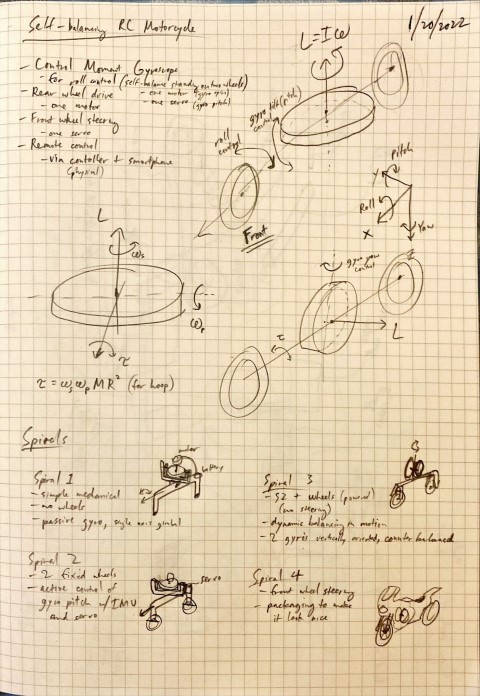 Self-balancing RC Motorcycle
1/20/2022
- Control Moment Gyroscope
- for roll control (self-balance standing on two wheels)
- one motor (gyro yaw)
- one servo (gyro pitch)
- Rear wheel drive
- one motor
- Front wheel steering
- one servo
- Remote control
- via contoller + smartphone
(physical)
L=Iω
gyro tilt (pitch)
control
roll
control
Front
Pitch
Y
Roll
X
Yaw
L
ωs
ωp
τ
τ = ωs ωp MR² (for hoop)
gyro yaw
control
τ
L
Spirals
Spiral 1
- simple mechanical
- no wheels
- passive gyro, single axis gimbal
motor
battery
Spiral 2
- 2 fixed wheels
- active control of
gyro pitch w/ IMU
and servo
servo
Spiral 3
- S2 + wheels (powered)
(no steering)
- dynamic balancing in motion
- 2 gyros vertically oriented, counter balanced
Spiral 4
- front wheel steering
- packaging to make
it look nice